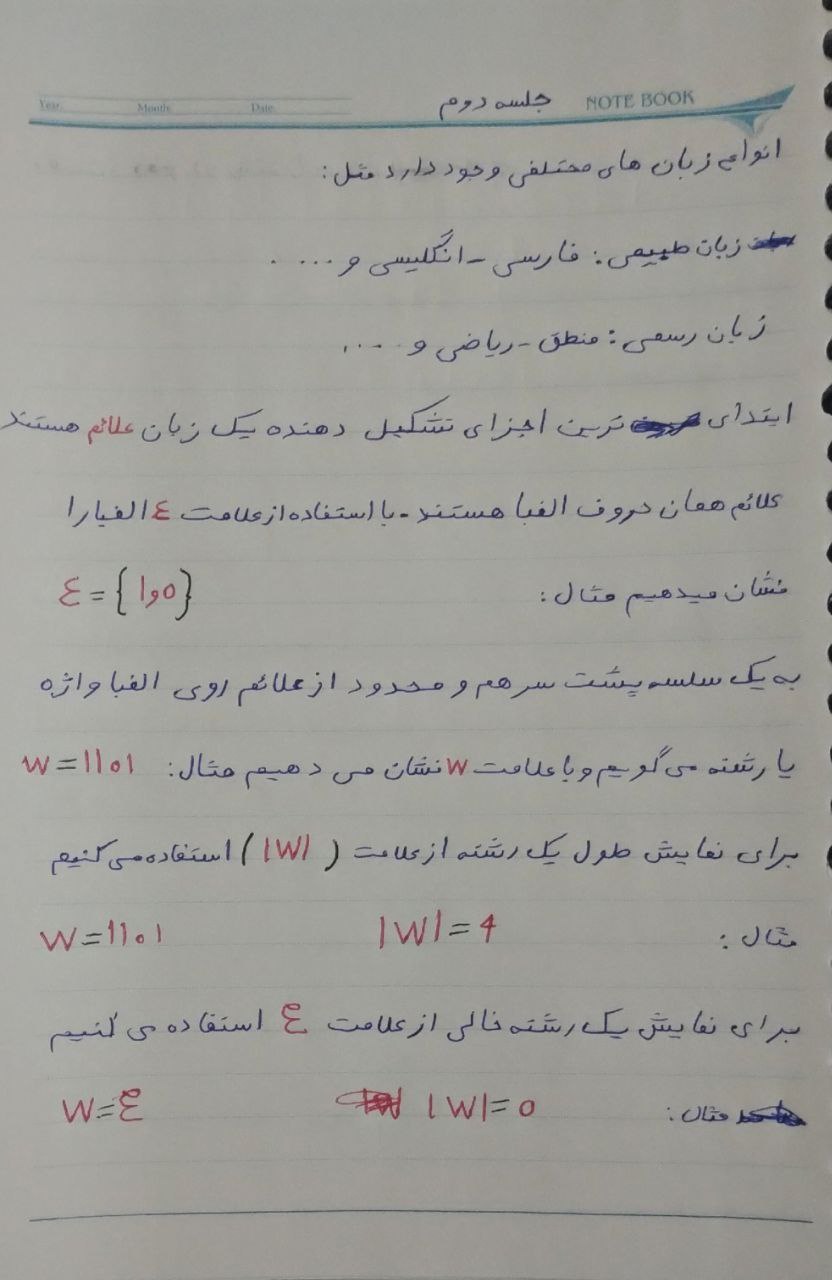 Year Month Date جلسه دوم NOTE BOOK
انواع زبان های مختلفی وجود دارد مثل:
زبان طبیعی: فارسی - انگلیسی و ....
زبان رسمی: منطق - ریاضی و ....
ابتدای ترین اجزای تشکیل دهنده یک زبان علائم هستند
علائم همان حروف الفبا هستند - با استفاده از علامت ع الفبا را
نشان میدهیم مثال: ع = {0و1}
به یک سلسه پشت سر هم و محدود از علائم روی الفبا واژه
یا رشته می گوییم و با علامت w نشان می دهیم مثال: w = 1101
برای نمایش طول یک رشته از علامت (|W|) استفاده می کنیم
مثال: |W| = 4 W = 1101
برای نمایش یک رشته خالی از علامت ع استفاده می کنیم
مثال: |W| = 0 W = ع